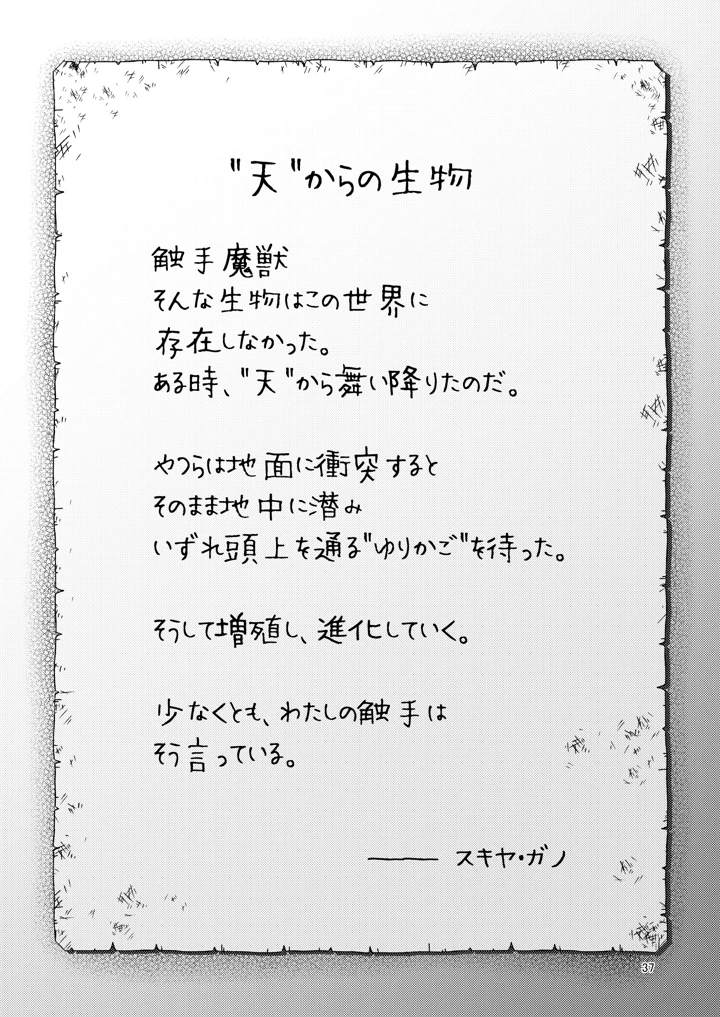 "天"からの生物
触手魔獣
そんな生物はこの世界に
存在しなかった。
ある時、"天"から舞い降りたのだ。
やつらは地面に衝突すると
そのまま地中に潜み
いずれ頭上を通る"ゆりかご"を待った。
そうして増殖し、進化していく。
少なくとも、わたしの触手は
そう言っている。
―― スキヤ・ガノ
37